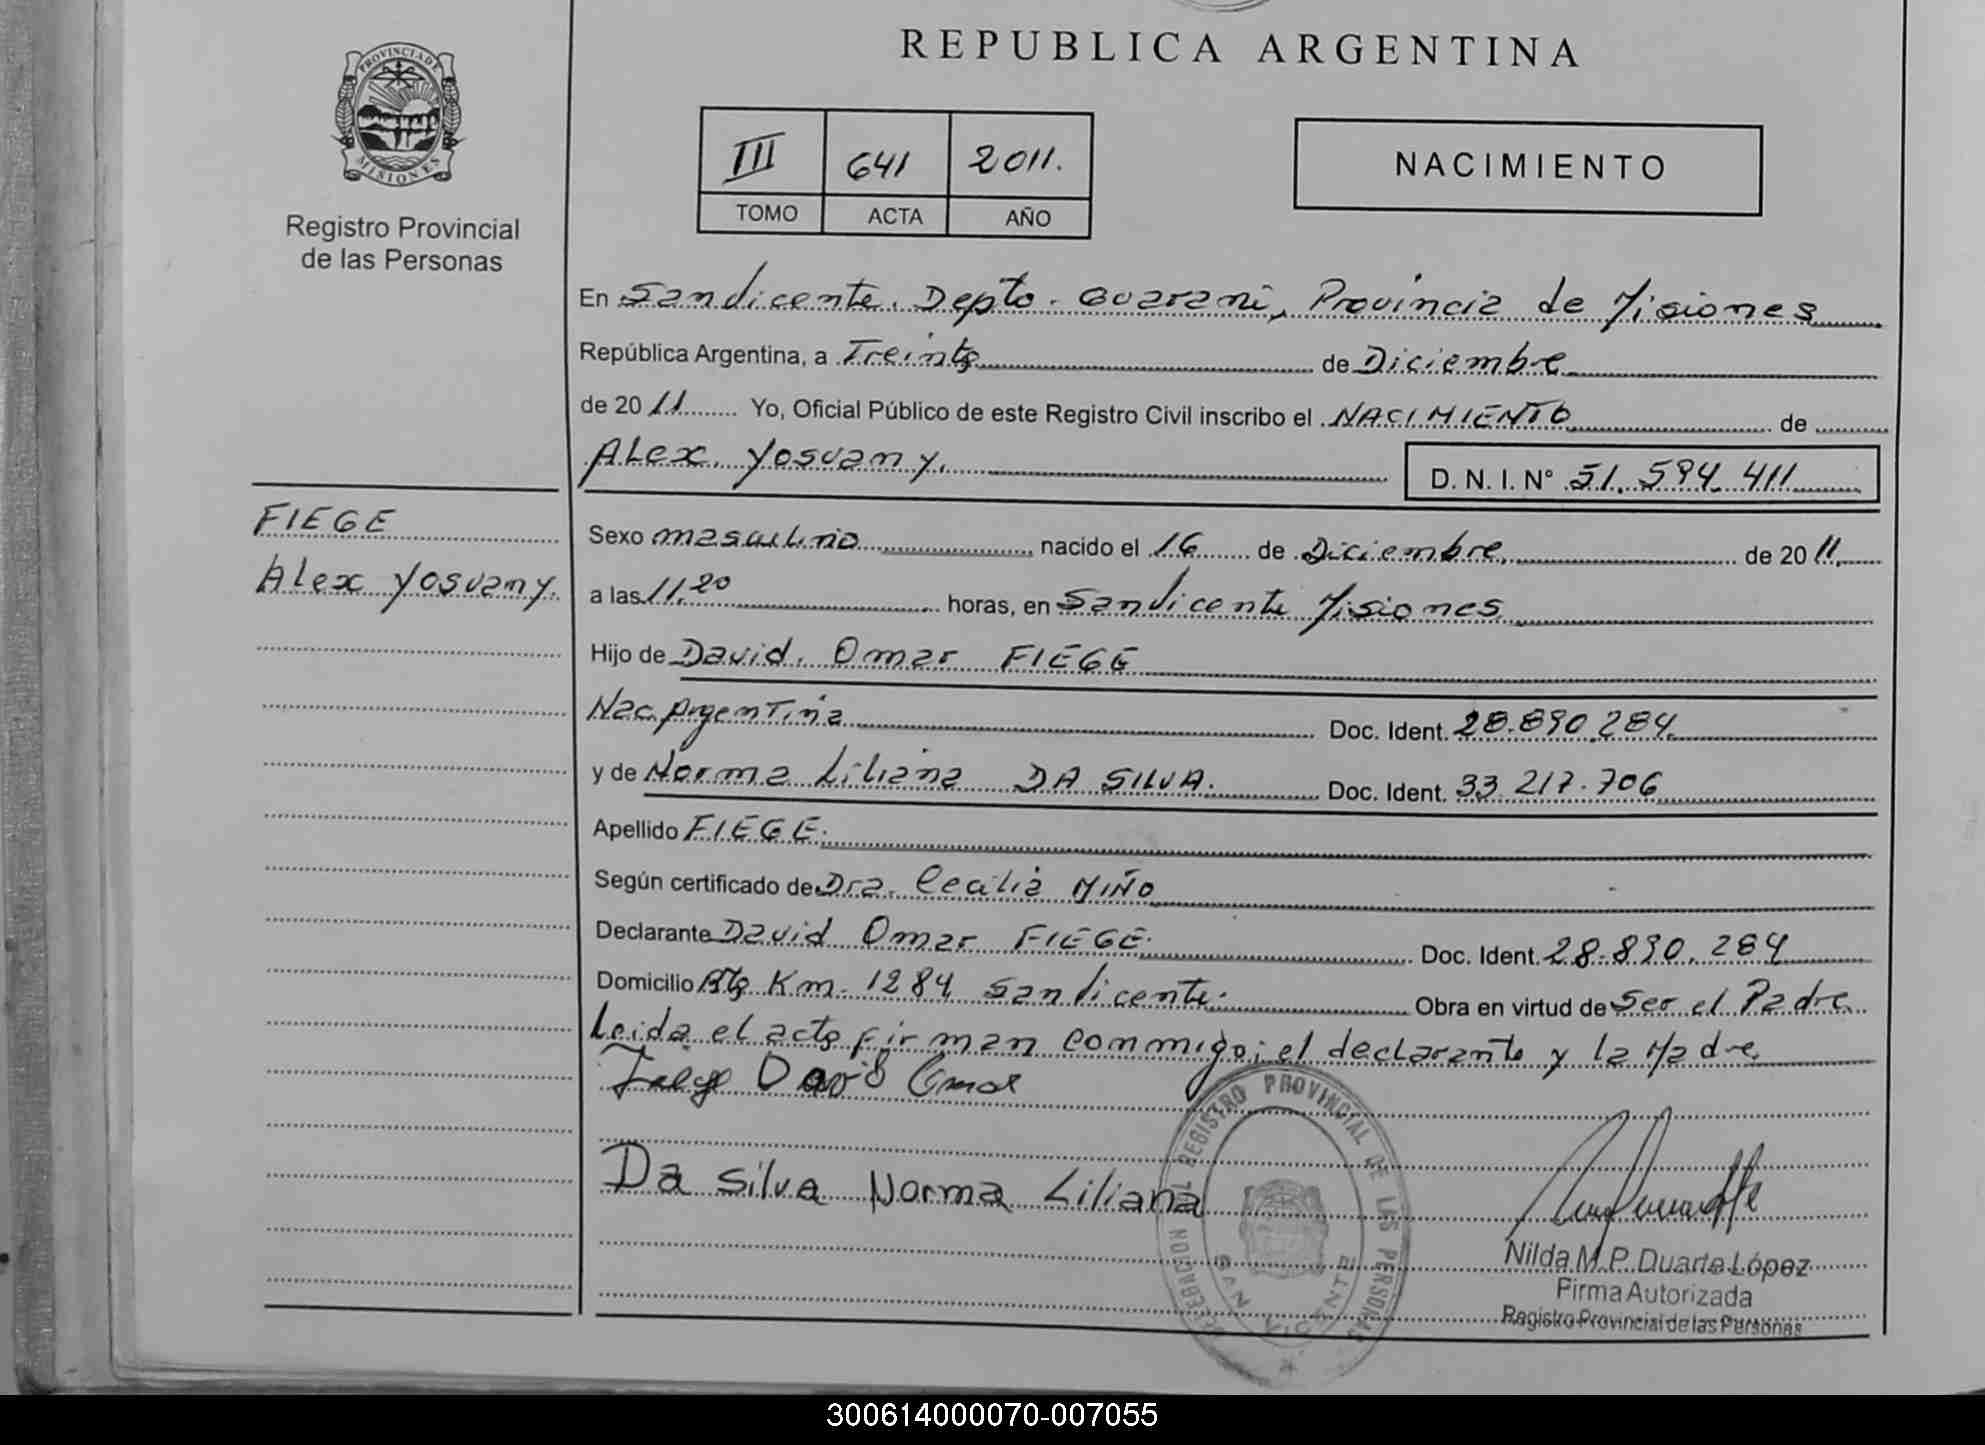 REPUBLICA ARGENTINA
PROVINCIA DE
MISIONES
Registro Provincial
de las Personas
III 641 2011.
TOMO ACTA AÑO
NACIMIENTO
En Sanvicente. Depto. Guarani, Provincia de Misiones
República Argentina, a Treinta de Diciembre
de 2011 Yo, Oficial Público de este Registro Civil inscribo el NACIMIENTO de
Alex Yosvany.
D. N. I. N° 51.594.411
FIEGE
Alex Yosvany.
Sexo masculino nacido el 16 de Diciembre de 2011.
a las 11,20 horas, en Sanvicente Misiones
Hijo de David Omar FIEGE
Nac. Argentina Doc. Ident. 28.890.284.
y de Norma Liliana DA SILVA. Doc. Ident. 33.217.706
Apellido FIEGE.
Según certificado de Dra. Cecilia MIÑO
Declarante David Omar FIEGE. Doc. Ident. 28.890.284
Domicilio Km. 1284 Sanvicente. Obra en virtud de Ser el Padre
Leida el acta firman conmigo; el declarante y la Madre
Fiege David Omar
Da Silva Norma Liliana
DELEGACION DEL REGISTRO PROVINCIAL DE LAS PERSONAS
SAN VICENTE
Nilda M. P. Duarte López
Firma Autorizada
Registro Provincial de las Personas
300614000070-007055